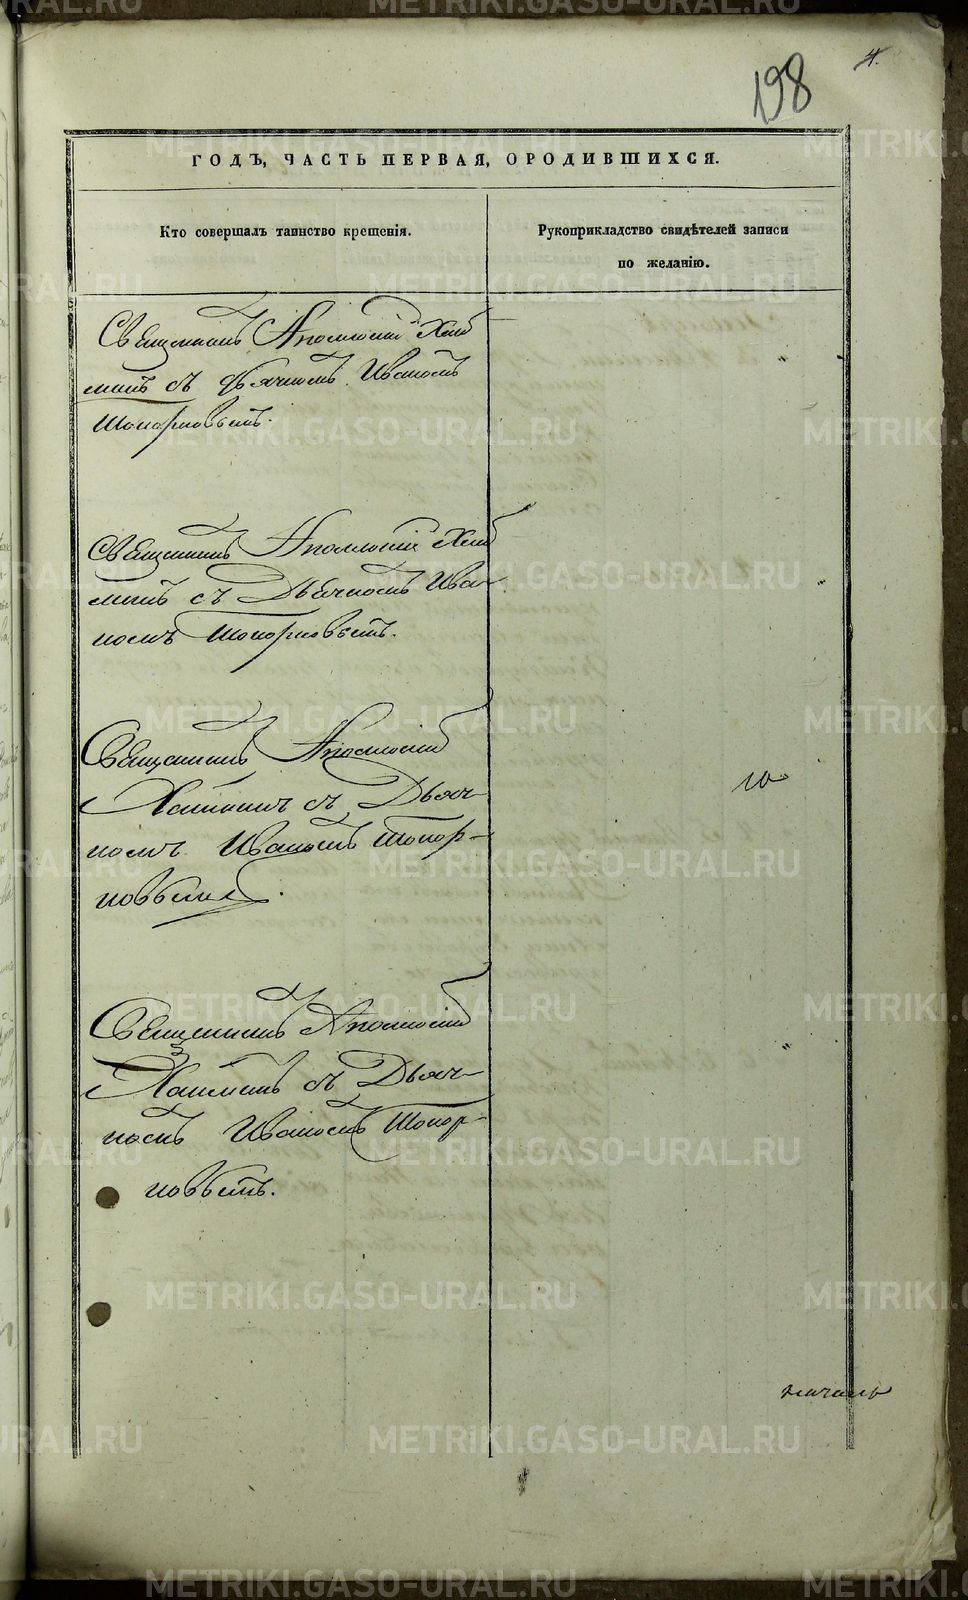 198
4.
ГОДЪ, ЧАСТЬ ПЕРВАЯ, О РОДИВШИХСЯ.
Кто совершалъ таинство крещенія.
Рукоприкладство свидѣтелей записи
по желанію.
Священникъ Аполлосій
съ Дьячкомъ Иваномъ
Топорковымъ.
Священникъ Аполлосій
съ Дьячкомъ Ива-
номъ Топорковымъ.
Священникъ Аполлосій
съ Дьяч-
комъ Иваномъ Топор-
ковымъ.
Священникъ Аполлосій
съ Дьяч-
комъ Иваномъ Топор-
ковымъ.
METRIKI.GASO-URAL.RU